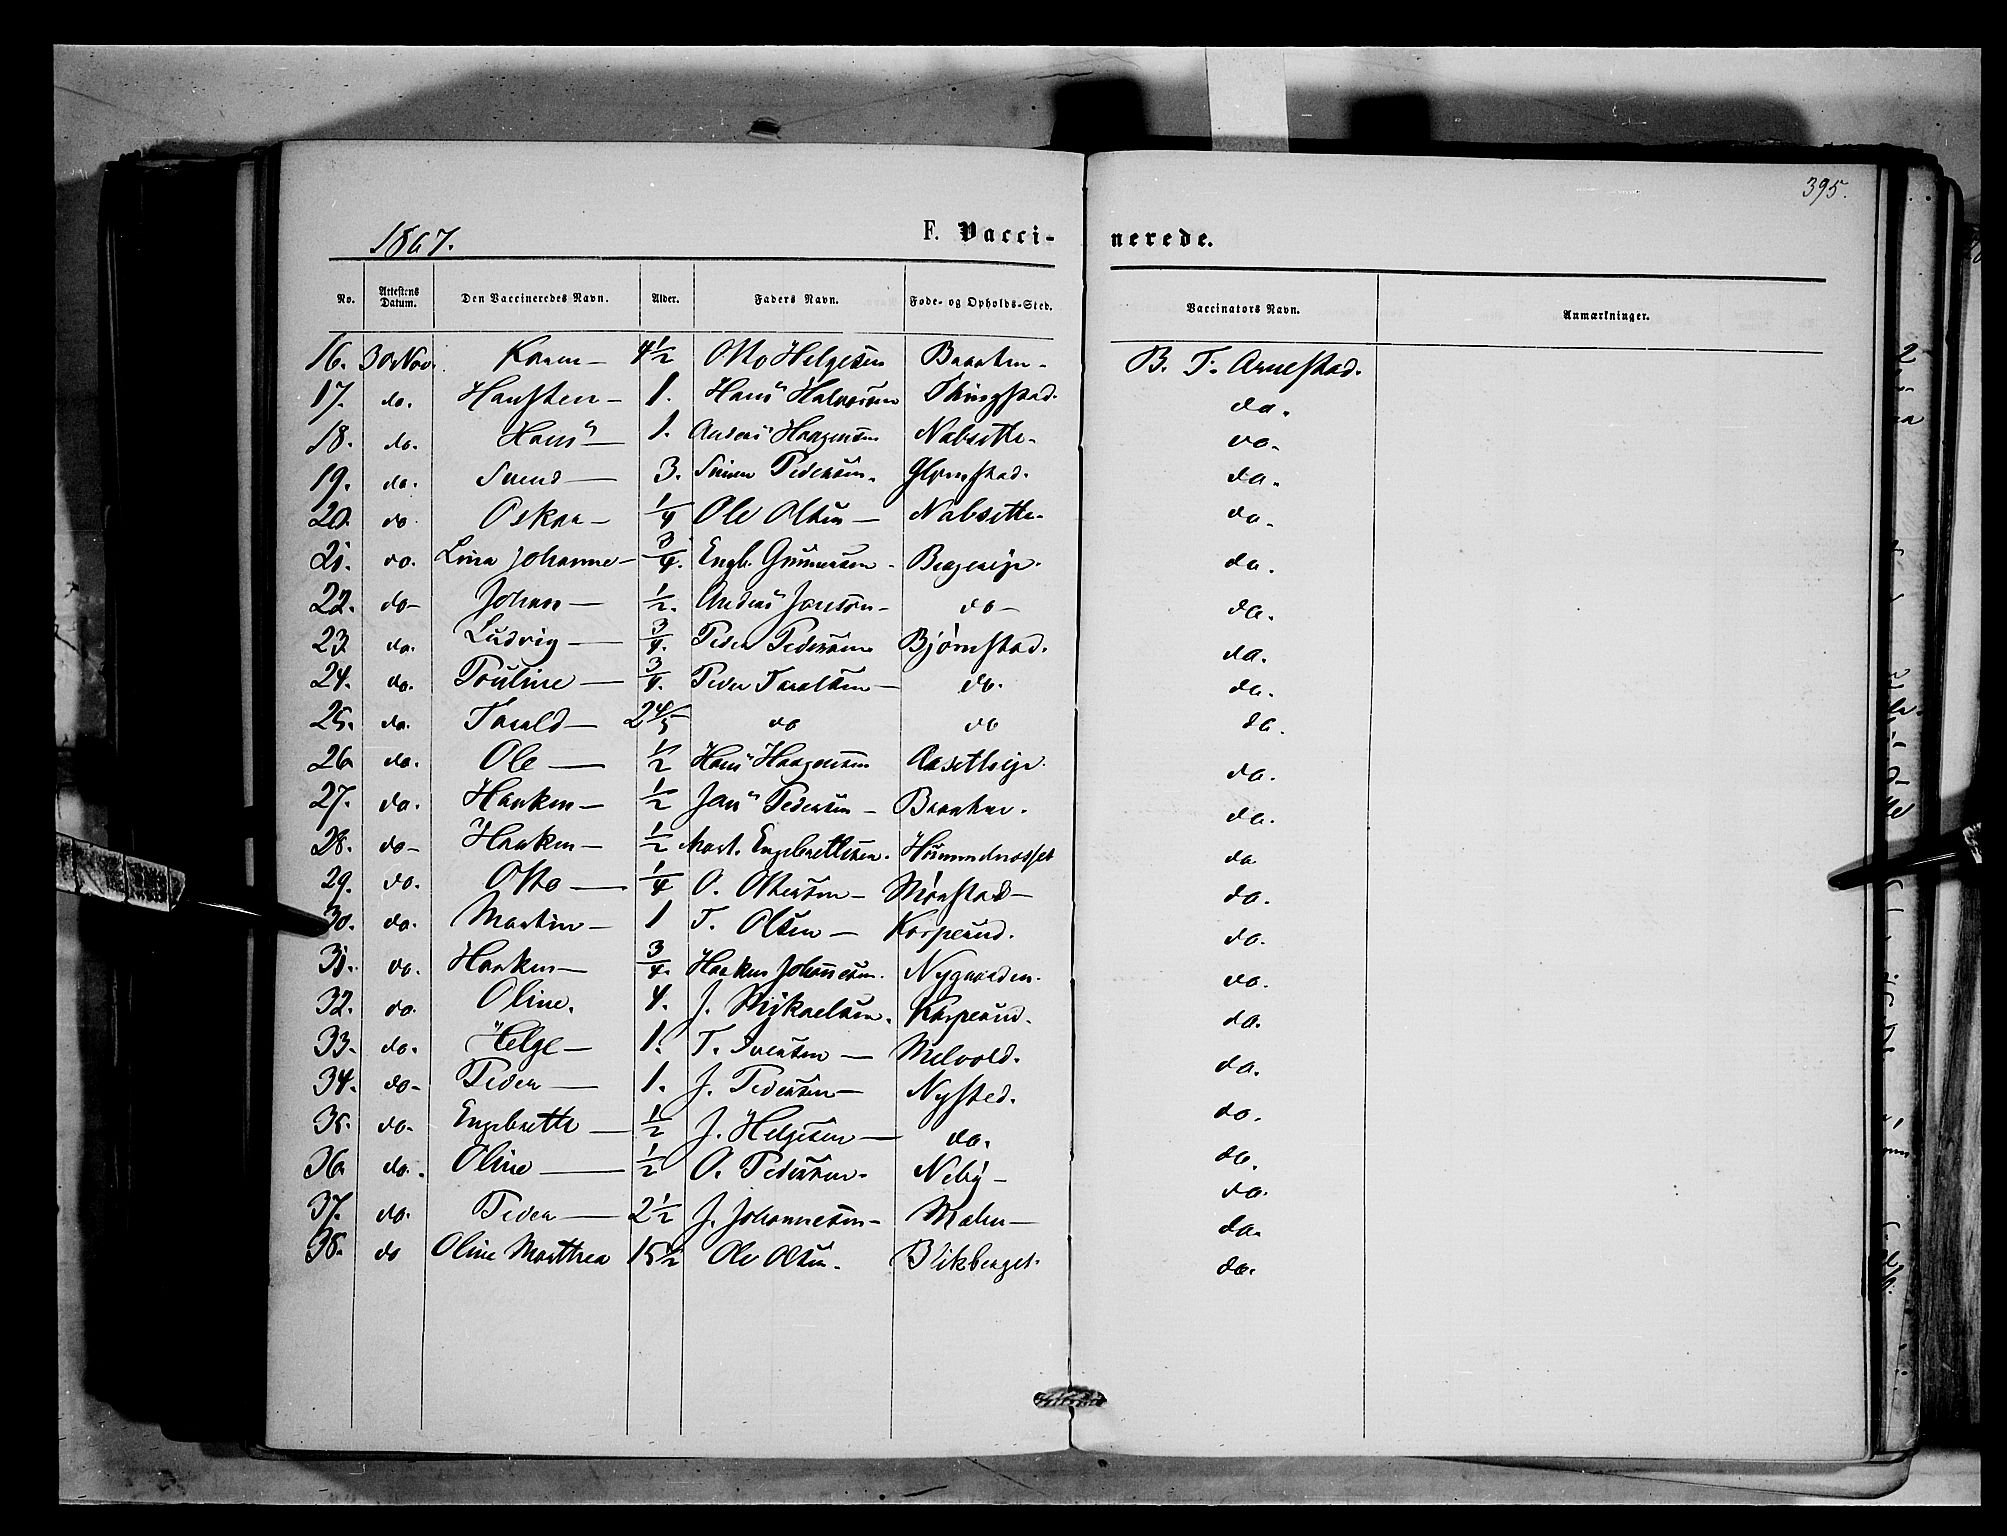 395.
1867. F. Vaccinerede.
No. Attestens Datum. Den Vaccineredes Navn. Alder. Faders Navn. Føde- og Opholds-Sted. Vaccinators Navn. Anmærkninger.
16. 30 Nov. Karen — 4 1/2 Otto Helgesen Braaten — B. T. Arnestad.
17. do. Hansten — 1. Hans Halvorsen Thingstad. do.
18. do. Hans — 1. Anders Haagensen Nabsette. do.
19. do. Svend — 3. Simen Pedersen. Glomstad. do.
20. do. Oskar — 1/4 Ole Olsen — Nabsette. do.
21. do. Lina Johanne — 3/4. Engb. Gunnersen. Bergseije. do.
22. do — Johan — 1/2. Anders Jonsen — do — do.
23. do. Ludvig — 3/4. Peder Pedersen Bjørnstad. do.
24. do. Pouline — 3/4. Peder Taraldsen — do. do.
25. do. Tarald — 2 4/5 do do do.
26. do. Ole — 1/2 Hans Haagensen Aasetheije. do.
27. do. Haaken — 1/2 Jans Pedersen — Braaten. do.
28. do — Haaken — 1/2 Mart. Engebrettsen. do
29. do. Otto — 1/4 O. Ottersen — Mørstad — do.
30. do. Martin — 1 T. Olsen — Kasperud. do.
31. do. Haaken — 3/4. Haaken Johannesen. Nygaarden. do.
32. do. Oline. 4. J. Mikaelsen. Kasperud. do.
33. do. Helge — 1. T. Iversen — Melvold. do.
34. do — Peder — 1. J. Pedersen — Nysted. do.
35. do. Engebrette — 1/2 J. Helgesen — do. do.
36. do. Oline — 1/2 O. Pedersen. Neby — do.
37. do. Peder — 2 1/2 J. Johannesen — Mælen — do.
38. do Oline Marthea 15 1/2 Ole Olsen. Blikberget. do.